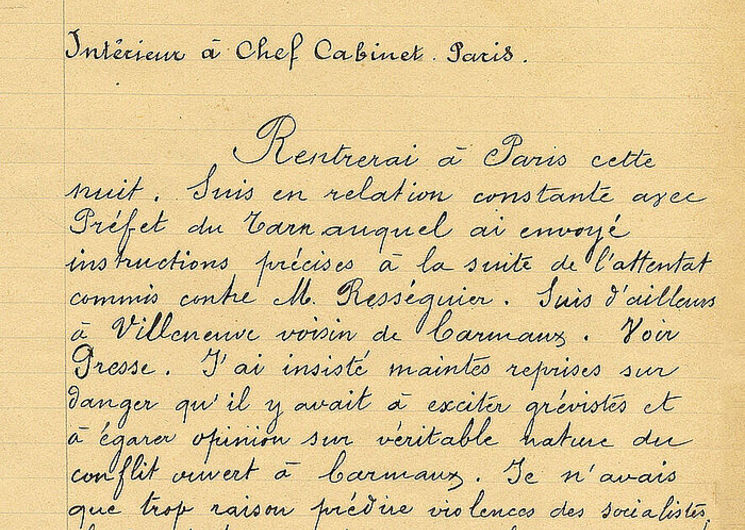 Intérieur à Chef Cabinet. Paris.
Rentrerai à Paris cette
nuit. Suis en relation constante avec
Préfet du Tarn auquel ai envoyé
instructions précises à la suite de l'attentat
commis contre M. Rességuier. Suis d'ailleurs
à Villeneuve voisin de Carmaux. Voir
Presse. J'ai insisté maintes reprises sur
danger qu'il y avait à exciter grévistes et
à égarer opinion sur véritable nature du
conflit ouvert à Carmaux. Je n'avais
que trop raison prédire violences des socialistes,